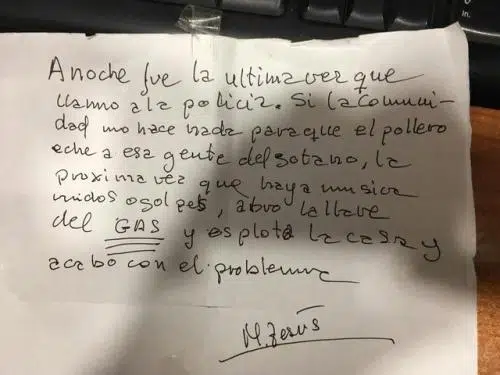 Anoche fue la ultima vez que
llamo a la policia. Si la comuni-
dad no hace nada para que el pollero
eche a esa gente del sotano, la
proxima vez que haya musica
ruidos o golpes, abro la llave
del GAS y esplota la casa y
acabo con el problema
M. Jesús